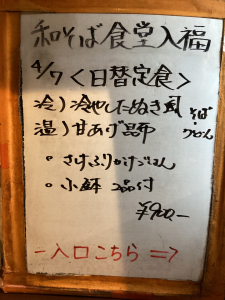 和そば食堂入福
4/7 <日替定食>
冷) 冷やしたぬき風 そば
温) 甘あげ うどん
。さけふりかけごはん
。小鉢 2品付
¥900.-
-入口こちら⇒